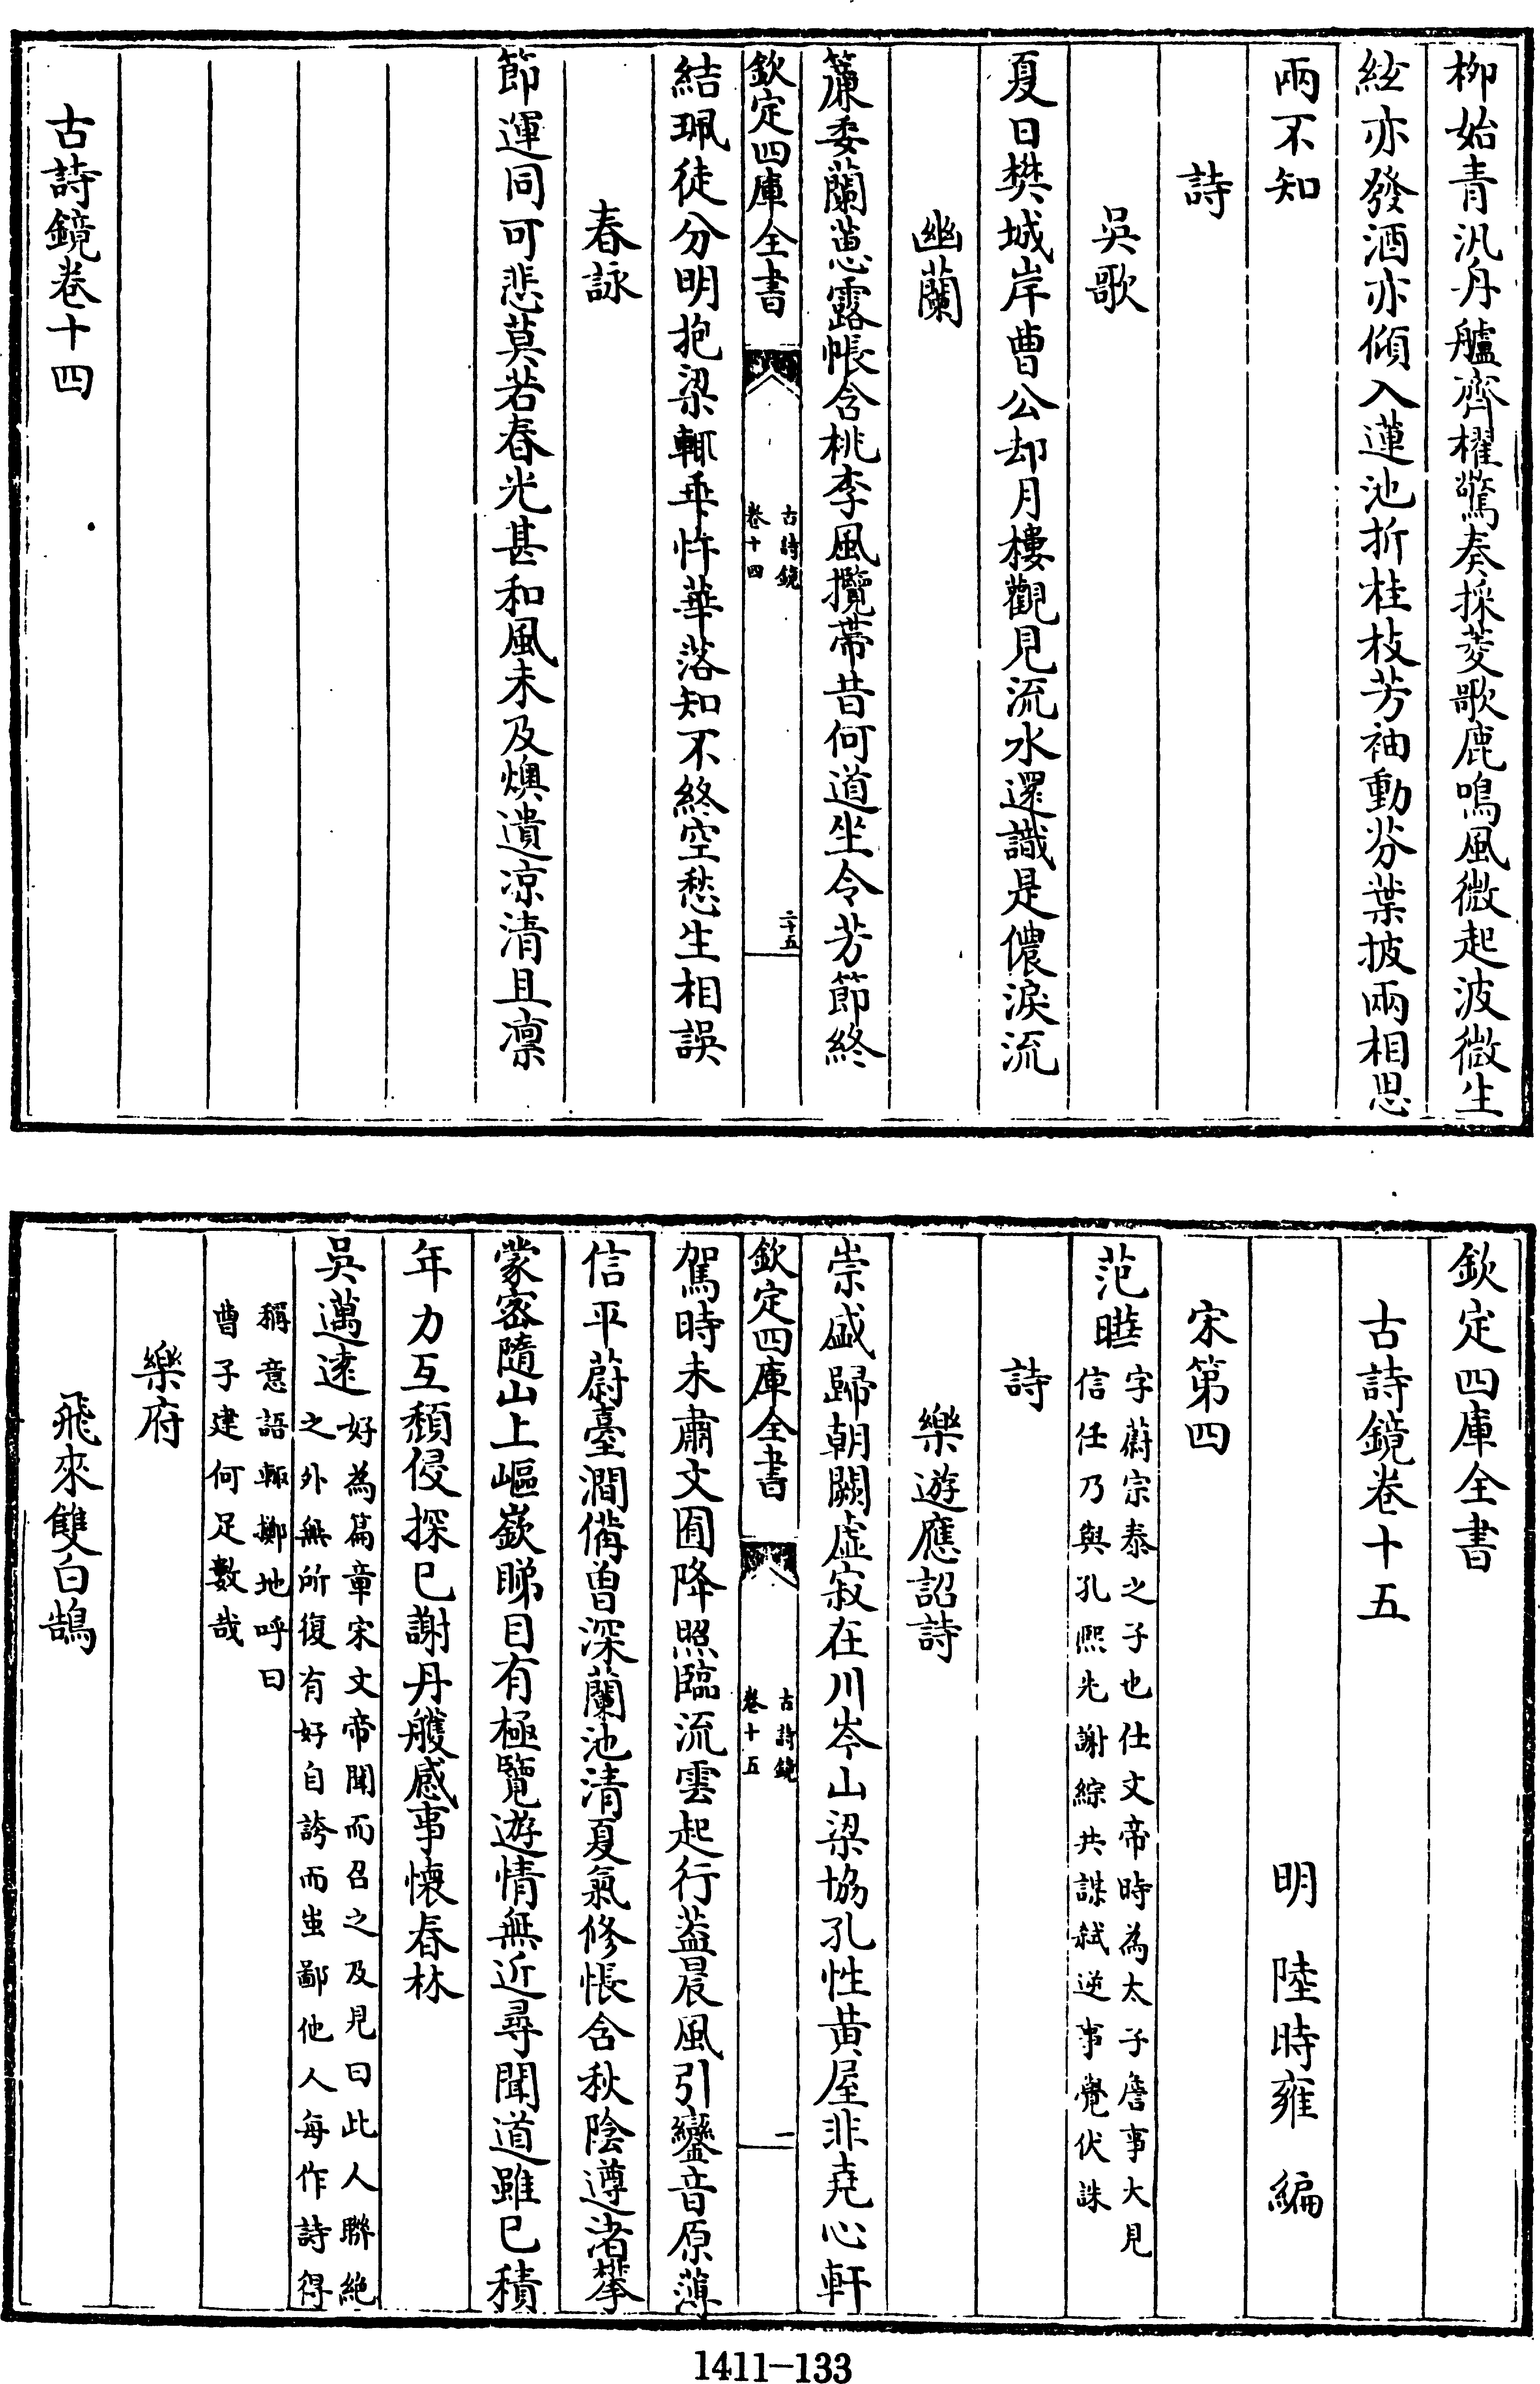 柳始青汎舟艫齊櫂驚奏採菱歌鹿鳴風微起波微生
絃亦發酒亦傾入蓮池折桂枝芳袖動芬葉披兩相思
兩不知
詩
吳歌
夏日樊城岸曹公却月樓觀見流水還識是儂淚流
幽蘭
簾委蘭蕙露帳含桃李風攬帶昔何道坐令芳節終
欽定四庫全書
古詩鏡
卷十四
二十五
結珮徒分明抱梁輙乖忤華落知不終空愁坐相誤
春詠
節運同可悲莫若春光甚和風未及燠遺凉清且凛
古詩鏡卷十四
欽定四庫全書
古詩鏡卷十五
明 陸時雍 編
宋第四
范曄字蔚宗泰之子也仕文帝時為太子詹事大見
信任乃與孔熙先謝綜共謀弒逆事覺伏誅
詩
樂遊應詔詩
崇盛歸朝闕虛寂在川岑山梁協孔性黃屋非堯心軒
欽定四庫全書
古詩鏡
卷十五
一
駕時未肅文囿降照臨流雲起行蓋晨風引鑾音原薄
信平蔚臺澗備曾深蘭池清夏氣修帳含秋陰遵渚攀
蒙密隨山上嶇嶔睇目有極覽遊情無近尋聞道雖已積
年力互頹侵探已謝丹雘感事懷春林
吳邁遠好為篇章宋文帝聞而召之及見曰此人聯絕
之外無所復有好自誇而蚩鄙他人每作詩得
稱意語輙擲地呼曰
曹子建何足數哉
樂府
飛來雙白鵠
1411-133